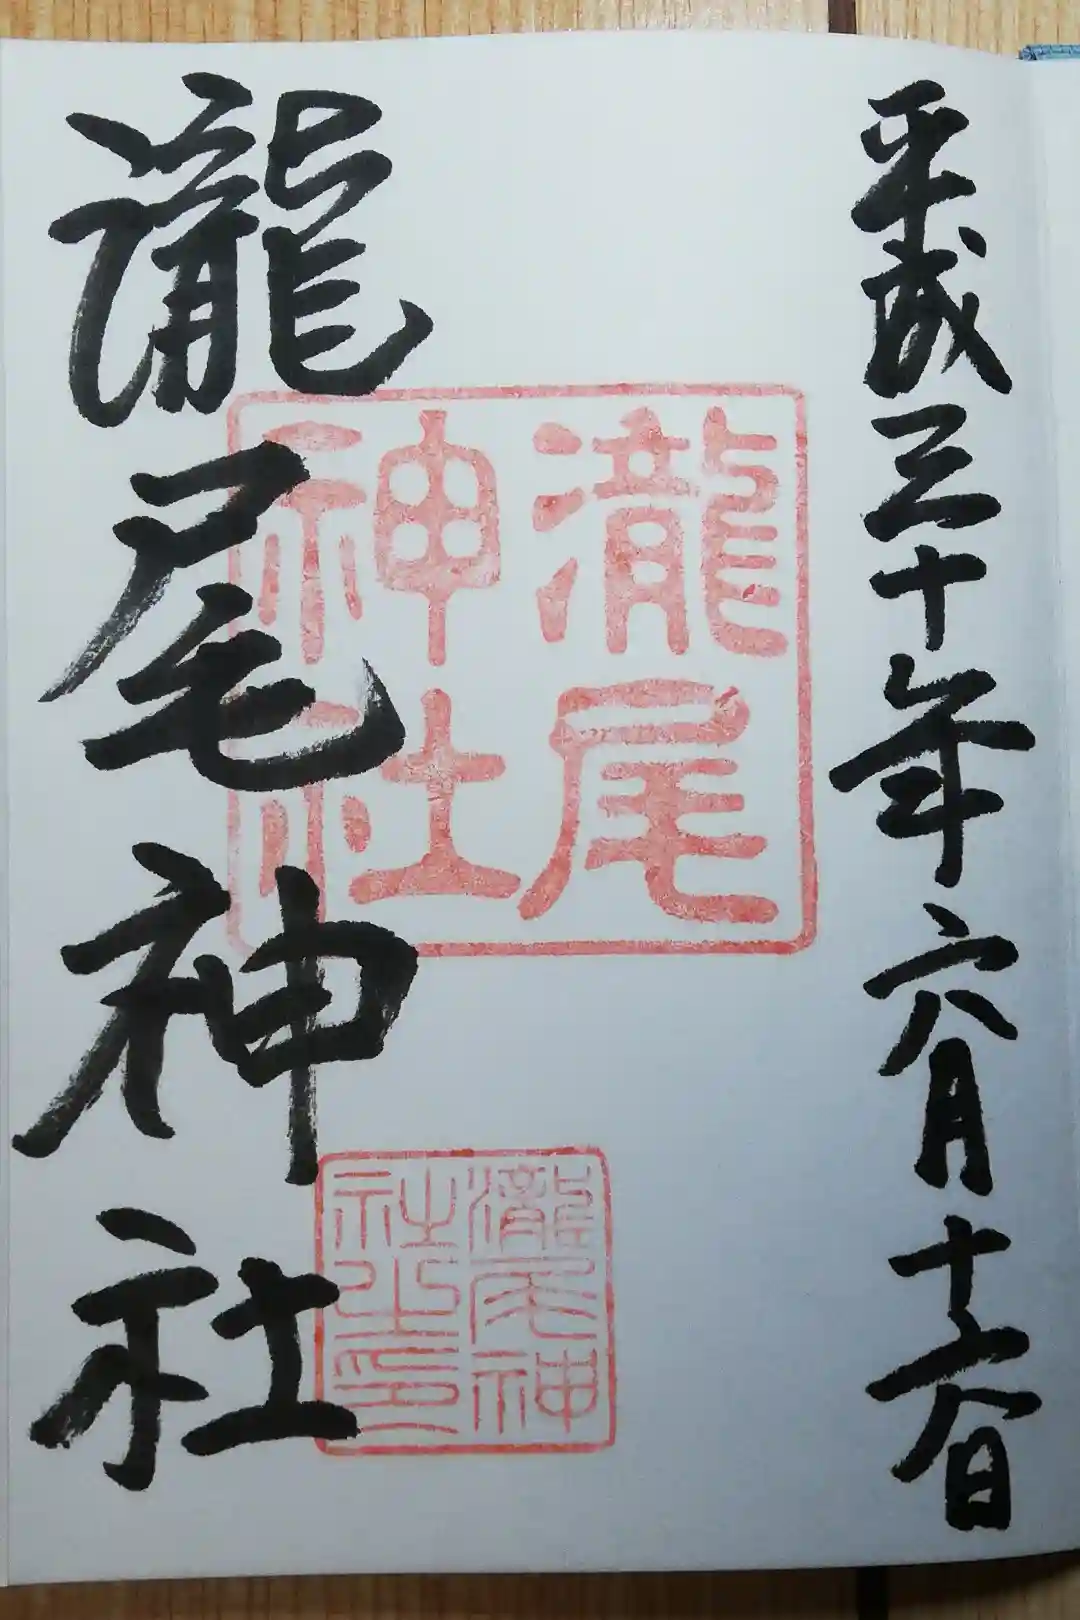 平成三十年六月十六日
瀧尾
神社
瀧尾神
社之印
瀧尾神社